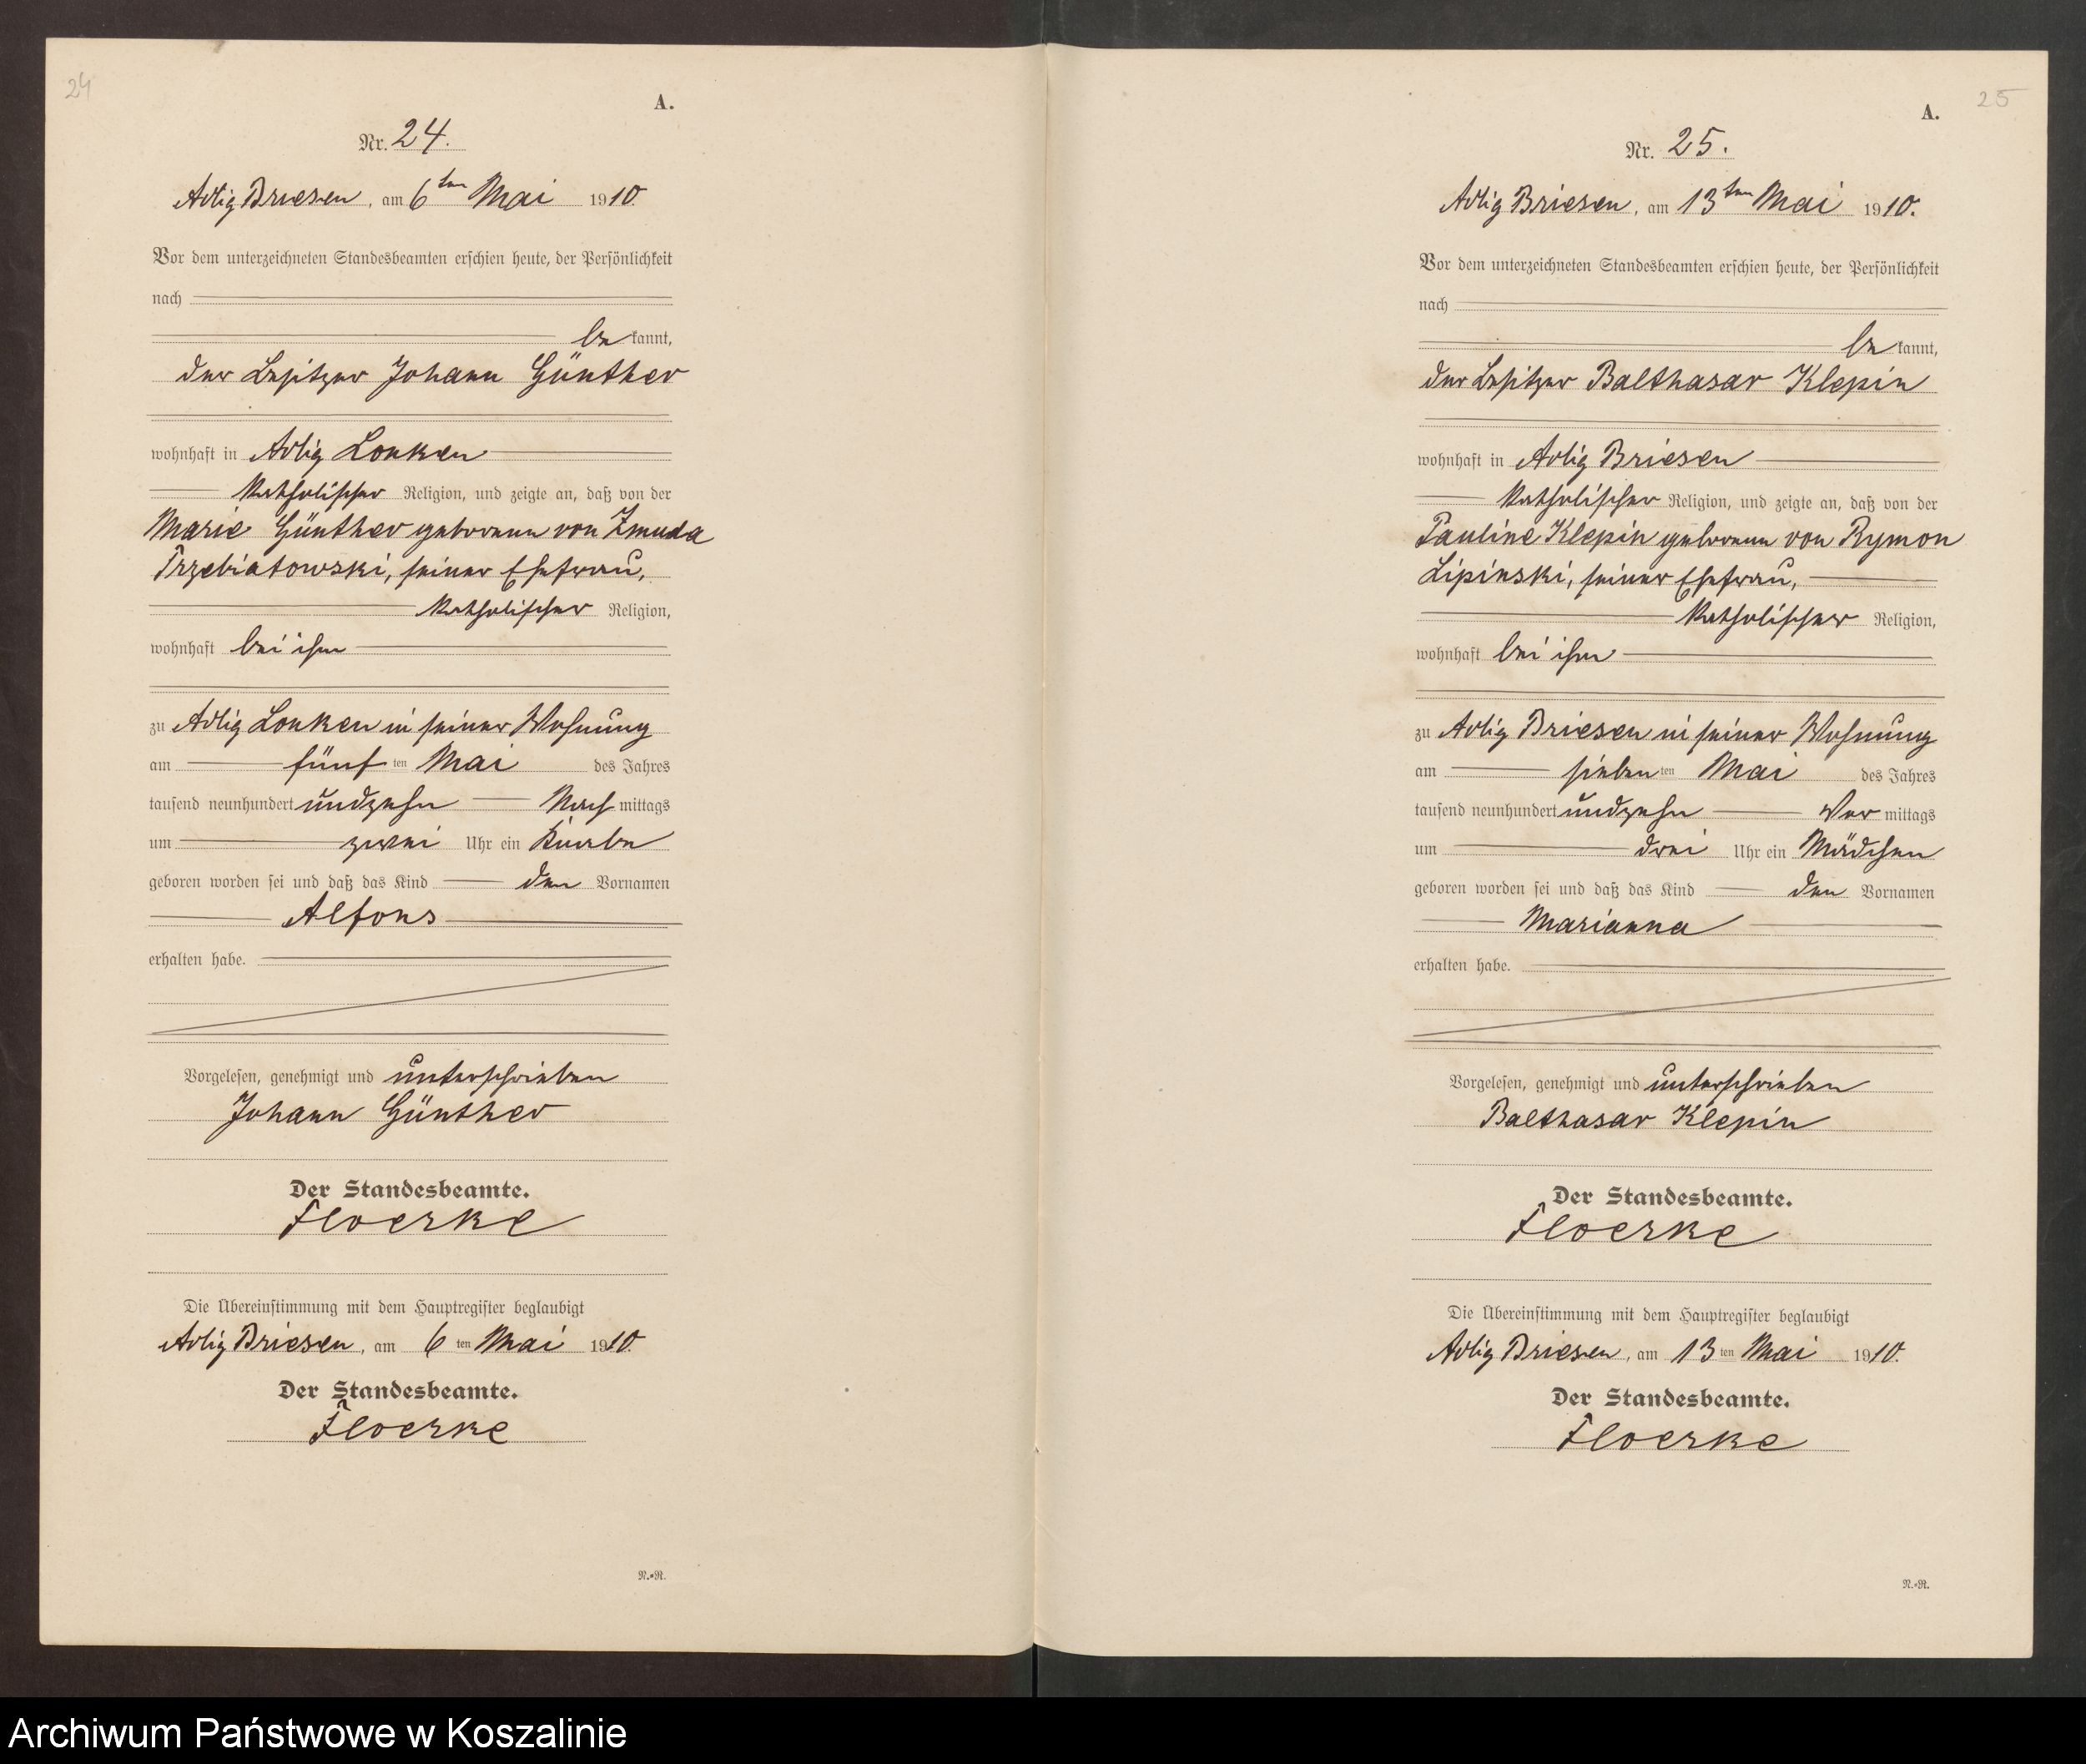 24
A.
Nr. 24.
Adlig Briesen, am 6ten Mai 1910.
Vor dem unterzeichneten Standesbeamten erschien heute, der Persönlichkeit
nach
be kannt,
der Besitzer Johann Günther
wohnhaft in Adlig Lonken
katholischer Religion, und zeigte an, daß von der
Marie Günther geborenen von Zmuda
Trzebiatowski, seiner Ehefrau,
katholischer Religion,
wohnhaft bei ihm
zu Adlig Lonken in seiner Wohnung
am fünf ten Mai des Jahres
tausend neunhundert undzehn Nach mittags
um zwei Uhr ein Knabe
geboren worden sei und daß das Kind den Vornamen
Alfons
erhalten habe.
Vorgelesen, genehmigt und unterschrieben
Johann Günther
Der Standesbeamte.
Floerke
Die Übereinstimmung mit dem Hauptregister beglaubigt
Adlig Briesen, am 6 ten Mai 1910.
Der Standesbeamte.
Floerke
N.-R.
25
A.
Nr. 25.
Adlig Briesen, am 13ten Mai 1910.
Vor dem unterzeichneten Standesbeamten erschien heute, der Persönlichkeit
nach
be kannt,
der Besitzer Balthasar Klepin
wohnhaft in Adlig Briesen
katholischer Religion, und zeigte an, daß von der
Pauline Klepin geborenen von Rymon
Lipinski, seiner Ehefrau,
katholischer Religion,
wohnhaft bei ihm
zu Adlig Briesen in seiner Wohnung
am sieben ten Mai des Jahres
tausend neunhundert undzehn Vor mittags
um drei Uhr ein Mädchen
geboren worden sei und daß das Kind den Vornamen
Marianna
erhalten habe.
Vorgelesen, genehmigt und unterschrieben
Balthasar Klepin
Der Standesbeamte.
Floerke
Die Übereinstimmung mit dem Hauptregister beglaubigt
Adlig Briesen, am 13 ten Mai 1910.
Der Standesbeamte.
Floerke
N.-R.
Archiwum Państwowe w Koszalinie